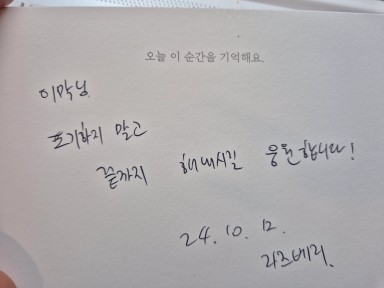 오늘 이 순간을 기억해요.
이막님
포기하지 말고
끝까지 해내시길 응원합니다!
24. 10. 12.
라즈베리.